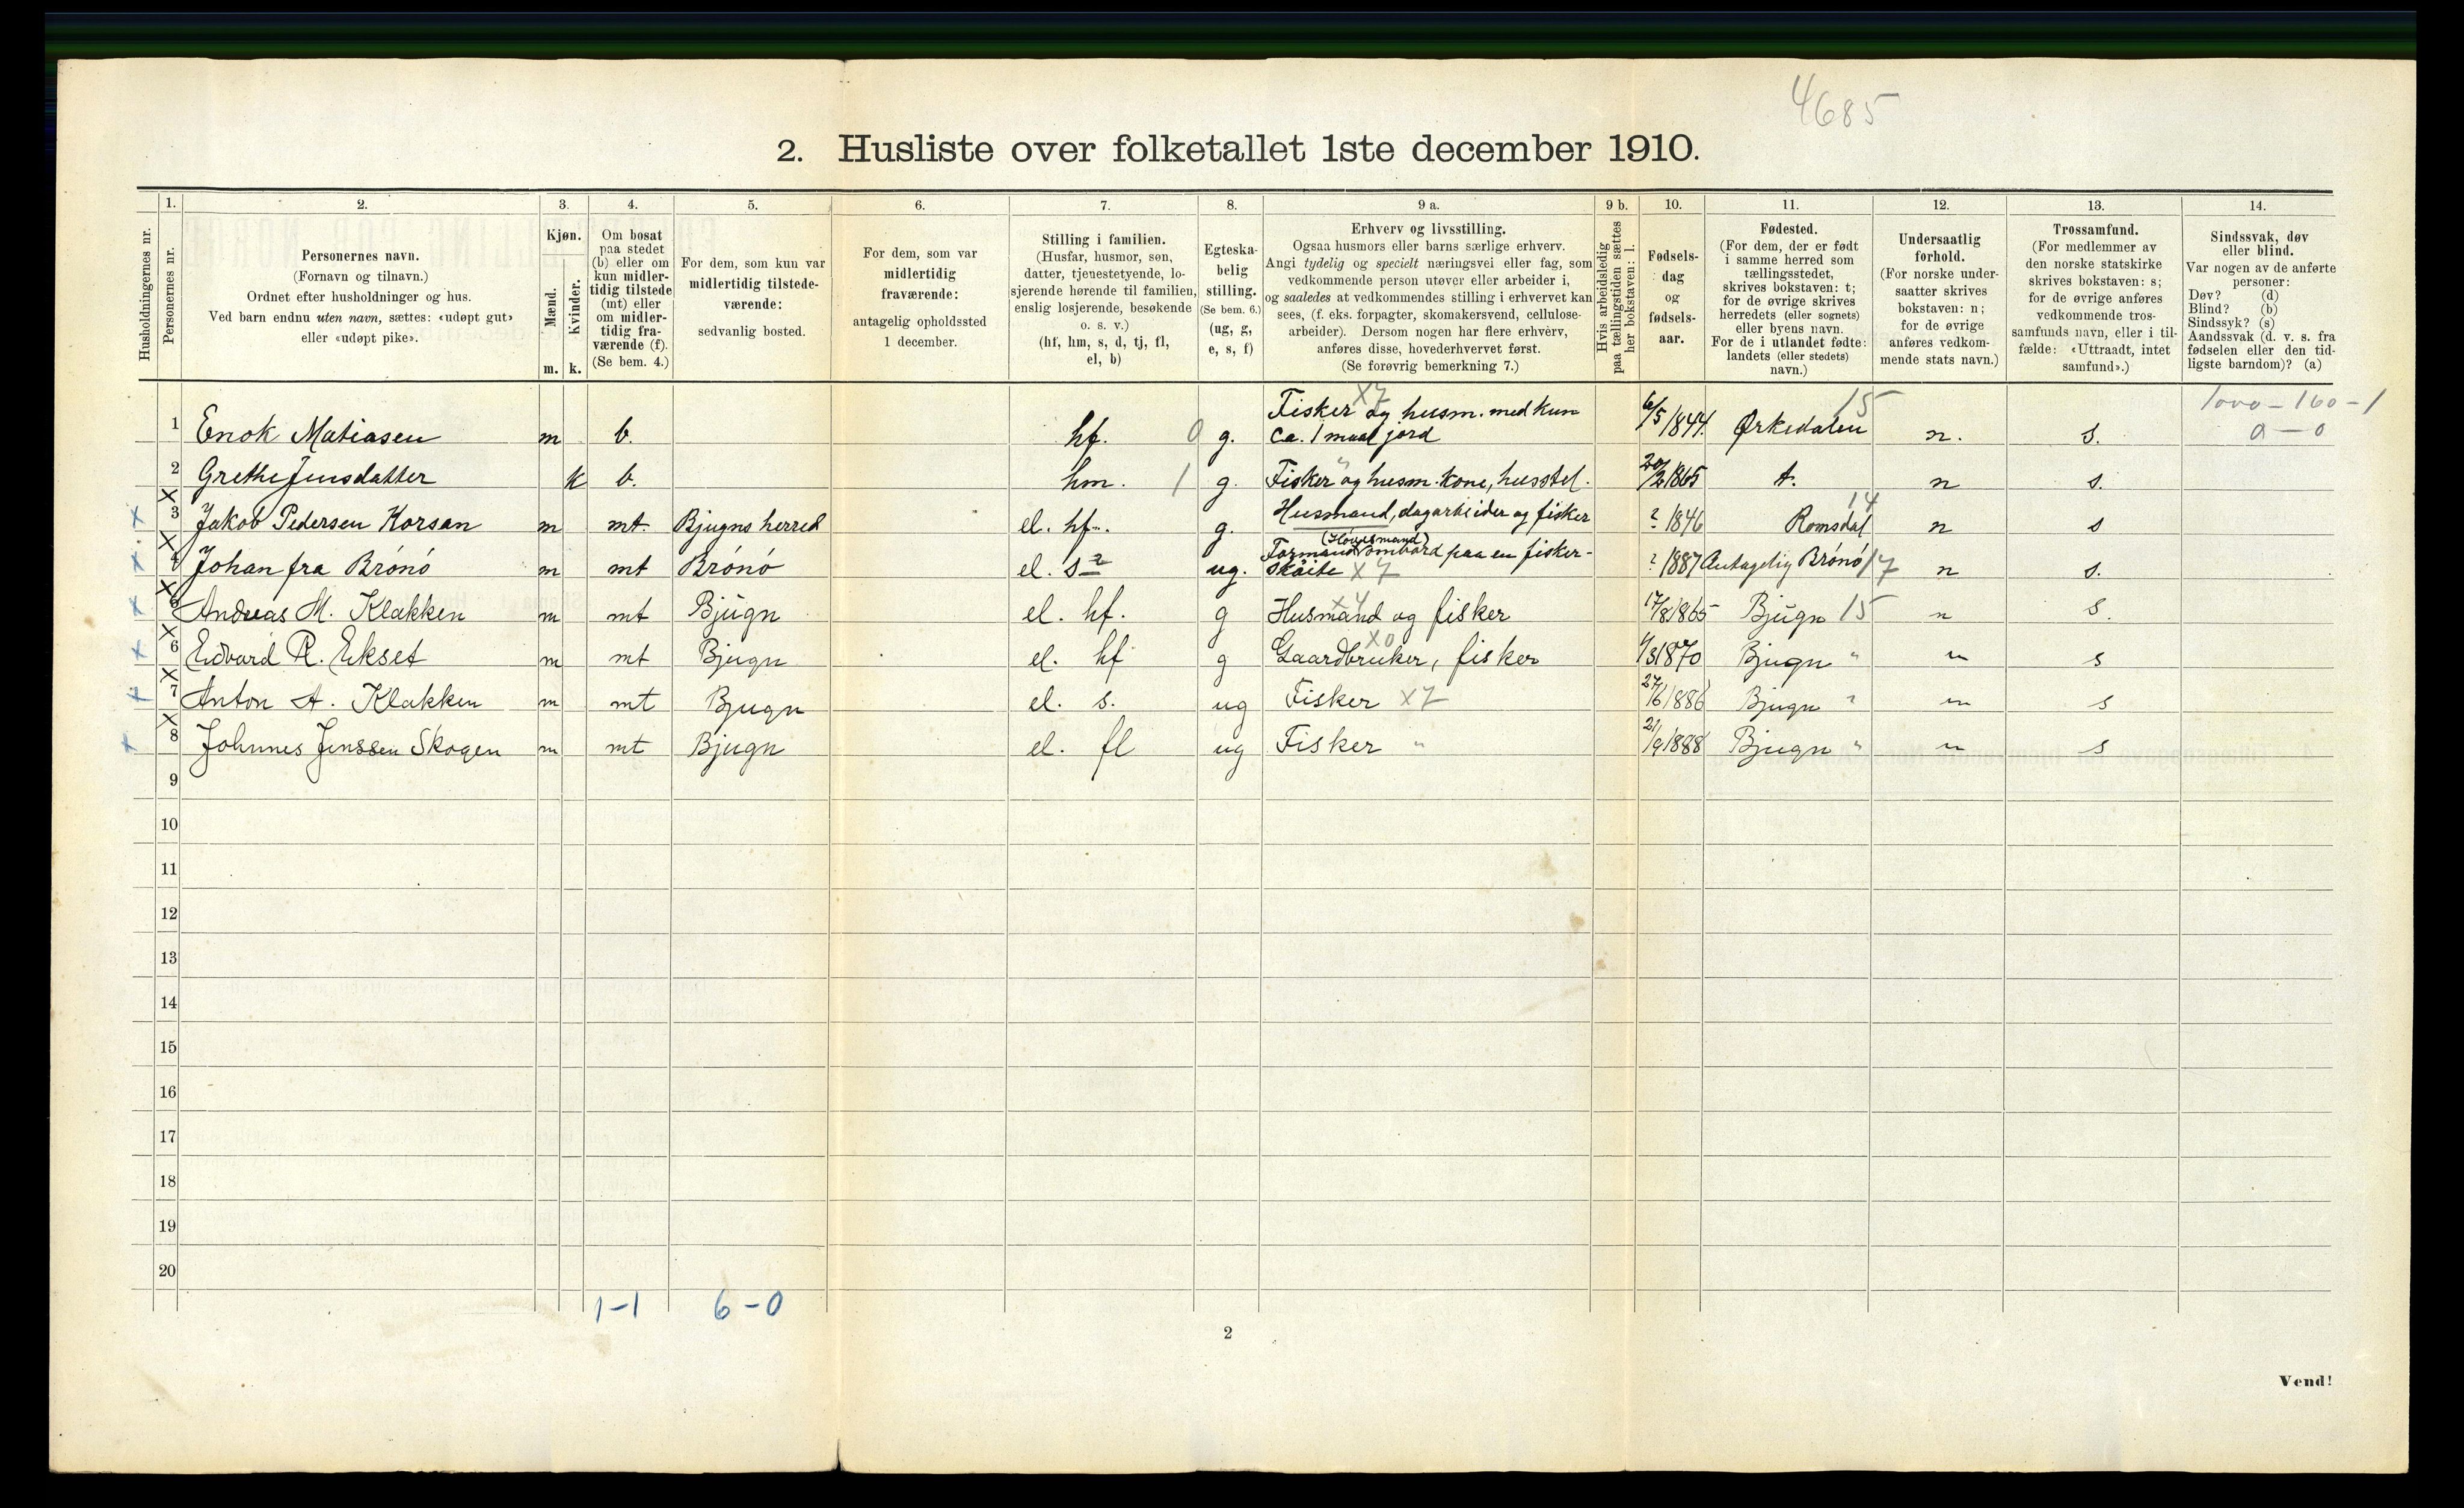 4685
2. Husliste over folketallet 1ste december 1910.
Husholdningernes nr.
1. Personernes nr.
2. Personernes navn.
(Fornavn og tilnavn.)
Ordnet efter husholdninger og hus.
Ved barn endnu uten navn, sættes: «udøpt gut»
eller «udøpt pike».
3. Kjøn.
Mænd. m.
Kvinder. k.
4. Om bosat
paa stedet
(b) eller om
kun midler-
tidig tilstede
(mt) eller
om midler-
tidig fra-
værende (f).
(Se bem. 4.)
5. For dem, som kun var
midlertidig tilstede-
værende:
sedvanlig bosted.
6. For dem, som var
midlertidig
fraværende:
antagelig opholdssted
1 december.
7. Stilling i familien.
(Husfar, husmor, søn,
datter, tjenestetyende, lo-
sjerende hørende til familien,
enslig losjerende, besøkende
o. s. v.)
(hf, hm, s, d, tj, fl,
el, b)
8. Egteska-
belig
stilling.
(Se bem. 6.)
(ug, g,
e, s, f)
9 a. Erhverv og livsstilling.
Ogsaa husmors eller barns særlige erhverv.
Angi tydelig og specielt næringsvei eller fag, som
vedkommende person utøver eller arbeider i,
og saaledes at vedkommendes stilling i erhvervet kan
sees, (f. eks. forpagter, skomakersvend, cellulose-
arbeider). Dersom nogen har flere erhverv,
anføres disse, hovederhvervet først.
(Se forøvrig bemerkning 7.)
9 b. Hvis arbeidsledig
paa tællingstiden sættes
her bokstaven: l.
10. Fødsels-
dag
og
fødsels-
aar.
11. Fødested.
(For dem, der er født
i samme herred som
tællingsstedet,
skrives bokstaven: t;
for de øvrige skrives
herredets (eller sognets)
eller byens navn.
For de i utlandet fødte:
landets (eller stedets)
navn.)
12. Undersaatlig
forhold.
(For norske under-
saatter skrives
bokstaven: n;
for de øvrige
anføres vedkom-
mende stats navn.)
13. Trossamfund.
(For medlemmer av
den norske statskirke
skrives bokstaven: s;
for de øvrige anføres
vedkommende tros-
samfunds navn, eller i til-
fælde: «Uttraadt, intet
samfund».)
14. Sindssvak, døv
eller blind.
Var nogen av de anførte
personer:
Døv? (d)
Blind? (b)
Sindssyk? (s)
Aandssvak (d. v. s. fra
fødselen eller den tid-
ligste barndom)? (a)
1 Enok Matiasen m b. hf. 0 g. Fisker og husm. med kun X7
ca. 1 maal jord 6/5 1844. Ørkedalen 15 n. s. 1000-160-1
0-0
2 Grethe Jensdatter k b. hm. 1 g. Fisker og husm. kone, husstel. 20/2 1865 t. n s.
x 3 Jakob Pedersen Korsan m mt Bjugns herred el. hf. g. Husmand, dagarbeider og fisker ? 1846 Romsdal 14 n s
x 4 Johan fra Brönö m mt Brönö el. s ug. Formand (Høvedsmand) ombord paa en fisker-
skøite X7 ? 1887 Antagelig Brönö 17 n s.
x 5 Andreas M. Klakken m mt Bjugn el. hf. g Husmand og fisker X4 17/8 1865 Bjugn 15 n s.
x 6 Edvard R. Ekset m mt Bjugn el. hf g Gaardbruker, fisker X0 1870 Bjugn " n s
x 7 Anton A. Klakken m mt Bjugn el. s. ug Fisker X7 27/6 1886 Bjugn " n s
x 8 Johnnes Jenssen Skogen m mt Bjugn el. fl ug Fisker " 21/9 1888 Bjugn " n s
9
10
11
12
13
14
15
16
17
18
19
20
1-1 6-0
2
Vend!